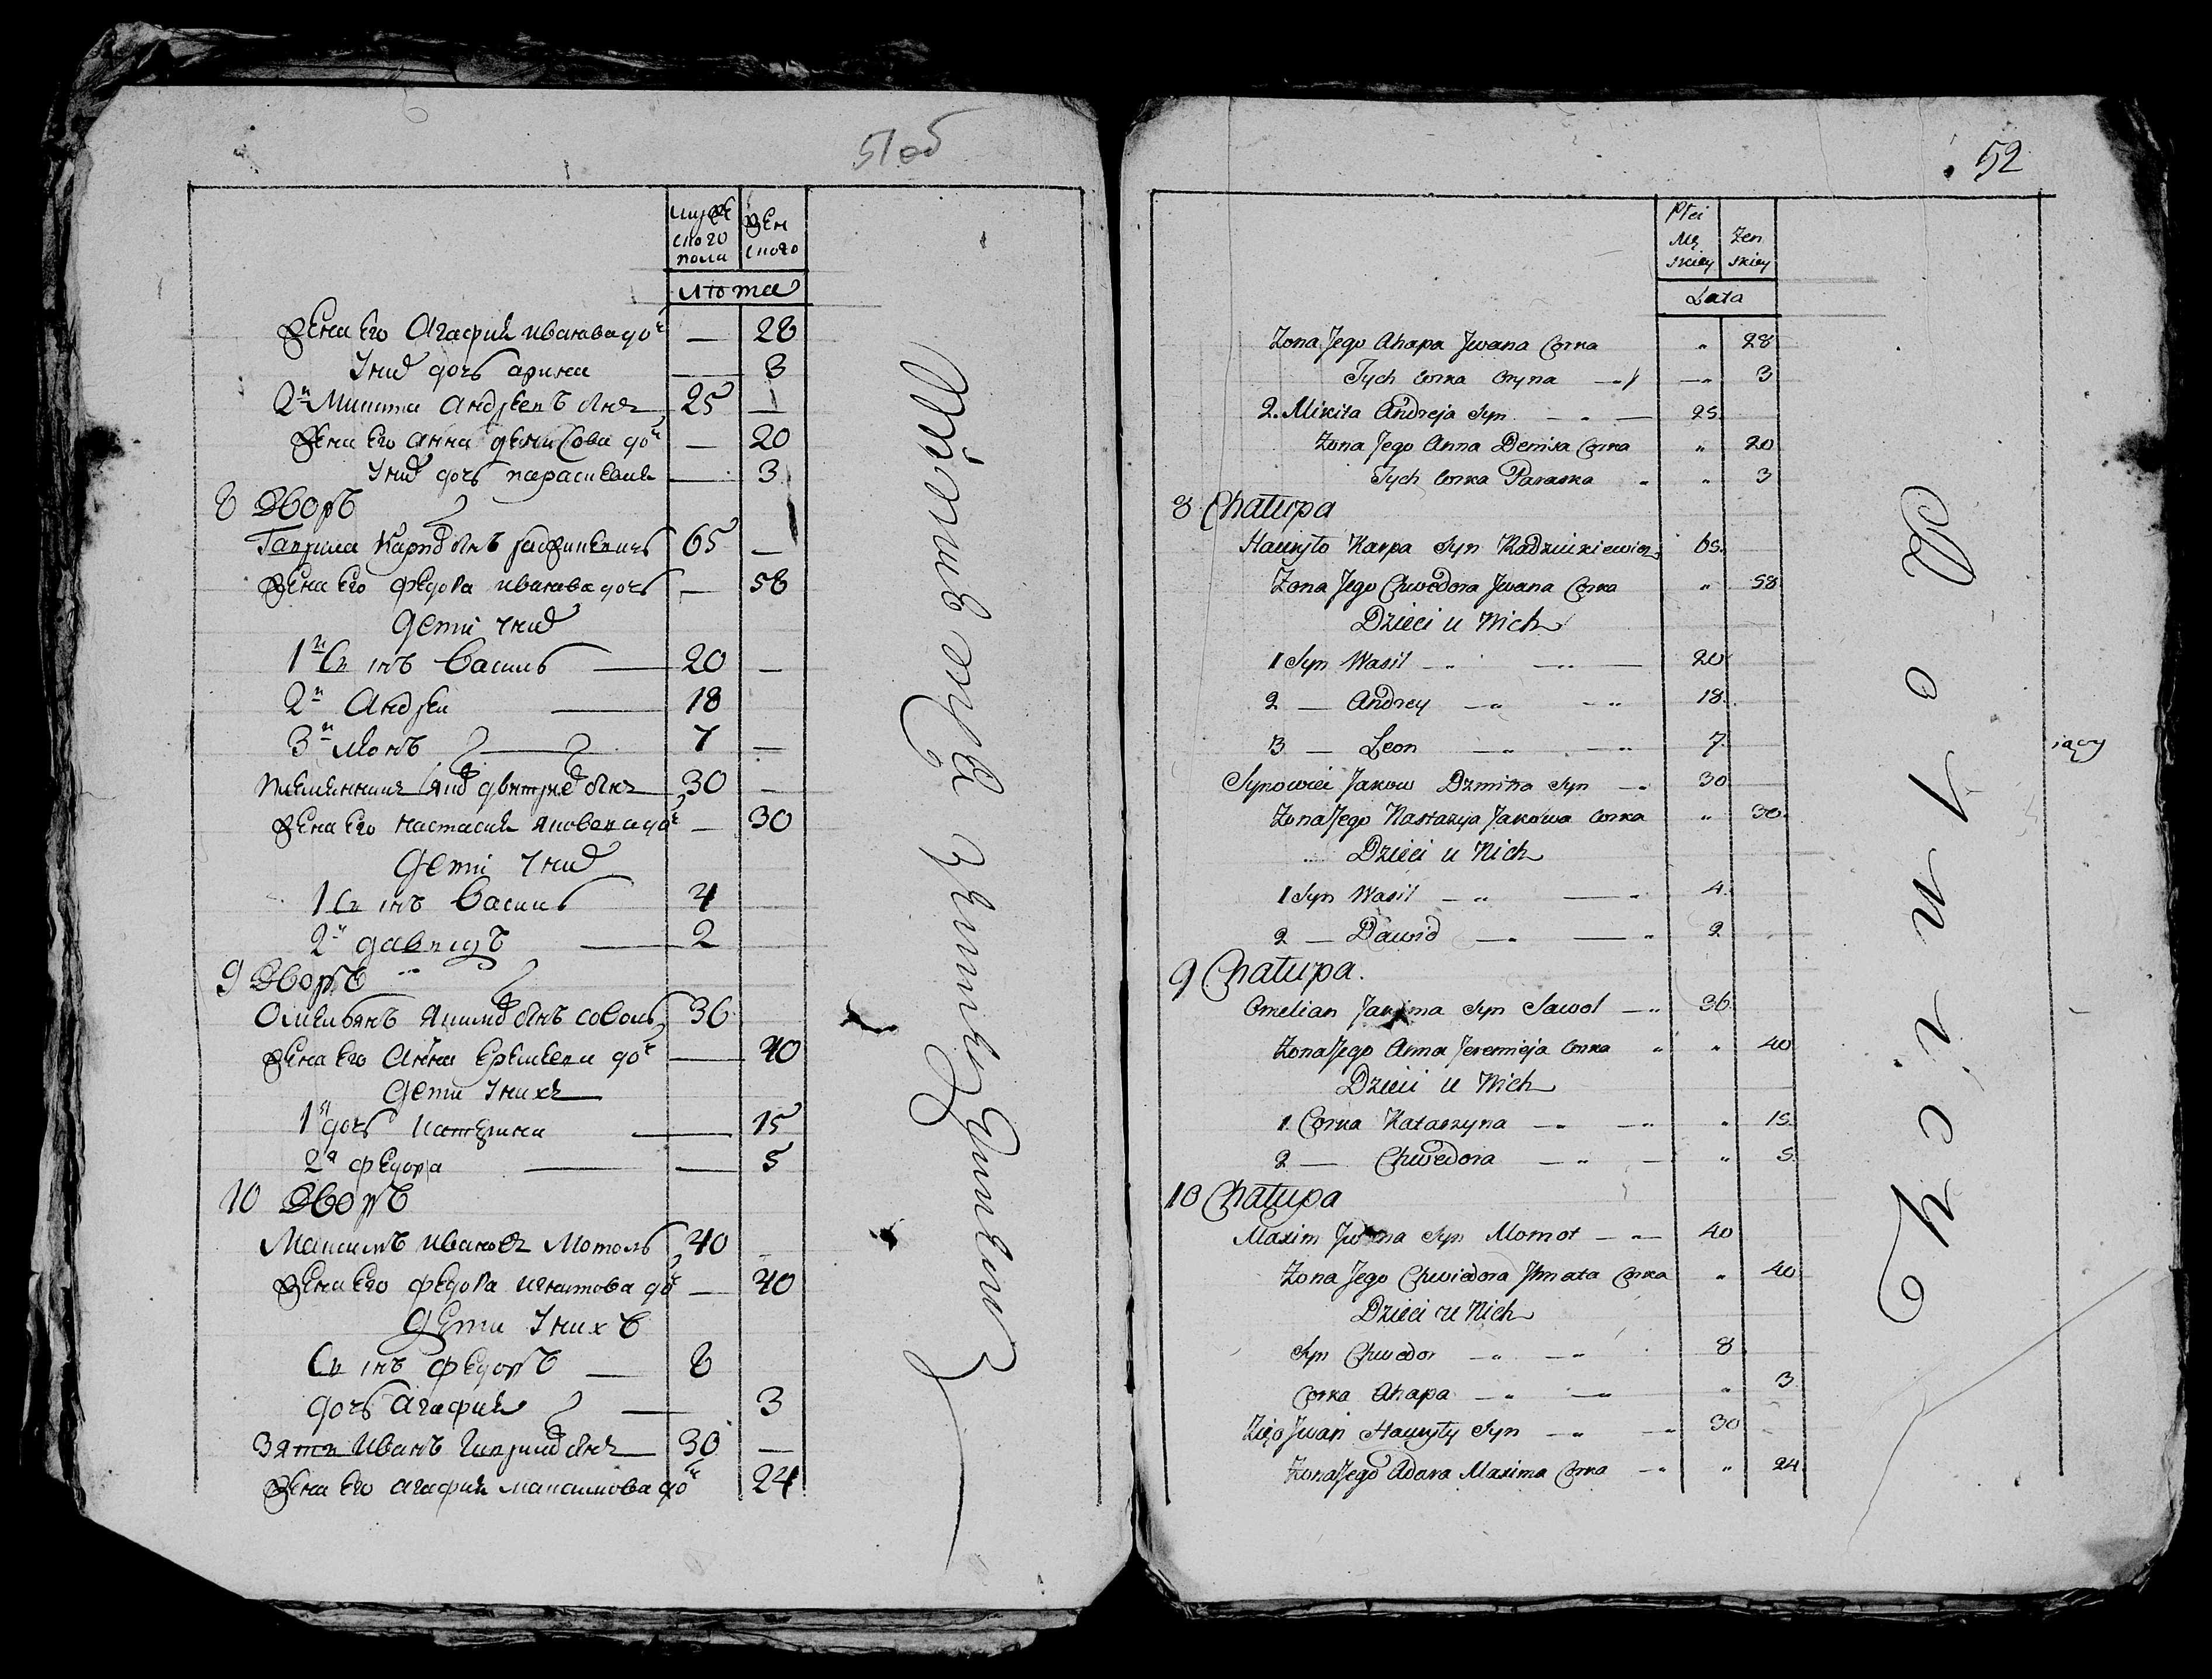 51 об
мужеского пола
женского
лѣта
жена Его Агафия иванава доч — 28
У них дочь арина — 3
2й Микита Андреевъ сынъ 25 —
жена Его анна денисова доч — 20
У них дочь параскевия — 3
8 Дворъ
Гаврила Карповъ сынъ радзикевичъ 65 —
жена Его федора иванава дочь — 58
дети у них
1й Сынъ Василь — 20 —
2й Андрей — 18
3й Леонъ 7 —
племянникъ Яков дмитриев сынъ 30 —
жена Его настасия яковлева доч — 30
дети у них
1 Сынъ Василь 4
2й давыдъ — 2
9 Дворъ
Омельянъ Якимов сынъ соволь 36
жена Его Анна Еремеева доч — 40
дети У нихъ
1я дочь катерина — 15
2я федора — 5
10 Дворъ
Максимъ ивановъ Мотоль 40
жена Его федора игнатова доч — 40
дети У нихъ
Сынъ федоръ — 8
дочь Агафия — 3
Зять Иванъ Гаврилов сынъ 30 —
жена Его агафия максимова доч 24
52
Płci Mę skiey
Żen skiey
Lata
Żona Jego Ahapa Jwana Corka " 28
Tych Corka Oryna — " 3
2. Mikita Andreja Syn — 25.
Żona Jego Anna Denisa Corka " 20
Tych Corka Paraska " " 3
8 Chałupa
Hawryło Karpa Syn Radziukiewicz 65.
Żona Jego Chwedora Jwana Corka " 58
Dzieci u Nich
1 Syn Wasil — " — 20
2 — Andrey — " — " 18.
3 — Leon — " — " 7.
Synowiec Jakow Dzmitra Syn — 30
Żona Jego Nastazya Jakowa Corka " 30.
Dzieci u Nich
1 Syn Wasil — " — " 4.
2 — Dawid — " — " 2
9 Chałupa.
Omelian Jakima Syn Sawol — " 36.
Żona Jego Anna Jeremieja Corka " " 40
Dzieci u Nich
1 Corka Katarzyna — " — " " 15.
2 — Chwedora — " — " 5.
10 Chałupa
Maxim Jwana Syn Momot — " — 40
Żona Jego Chwiedora Jhnata Corka " 40
Dzieci u Nich
Syn Chwedor — " — " 8
Corka Ahapa — " — " " 3
Zięć Jwan Hawryły Syn — " — " 30
Żona Jego Adara Maxima Corka — " " 24
iący